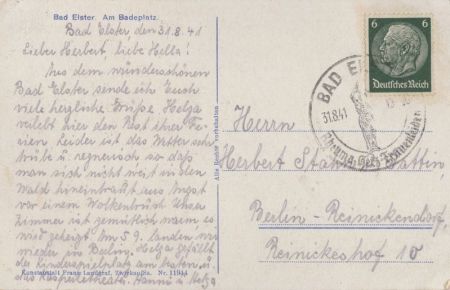 Bad Elster. Am Badeplatz.
Bad Elster, den 31.8.41
Lieber Herbert, liebe Hella!
Aus dem wunderschönen
Bad Elster sende ich Euch
viele herzliche Grüße. Helga
verlebt hier den Rest ihrer Fe-
rien. Leider ist das Wetter sehr
trübe u. regnerisch so daß
man sich nicht weit in den
Wald hineintraut aus Angst
vor einem Wolkenbruch. Unser
Zimmer ist gemütlich warm es
wird geheizt. Am 5.9. landen wir
wieder in Berlin. Helga gefällt
der Kinderspielplatz am besten u.
das Kasperletheater. Hanna u. Helga
Kunstanstalt Franz Landgraf, Zwickau/Sa. Nr. 11944
Alle Rechte vorbehalten
6 6
Deutsches Reich
BAD
31.8.41
Herrn
Herbert
Berlin-Reinickendorf,
Reinickeshof 10